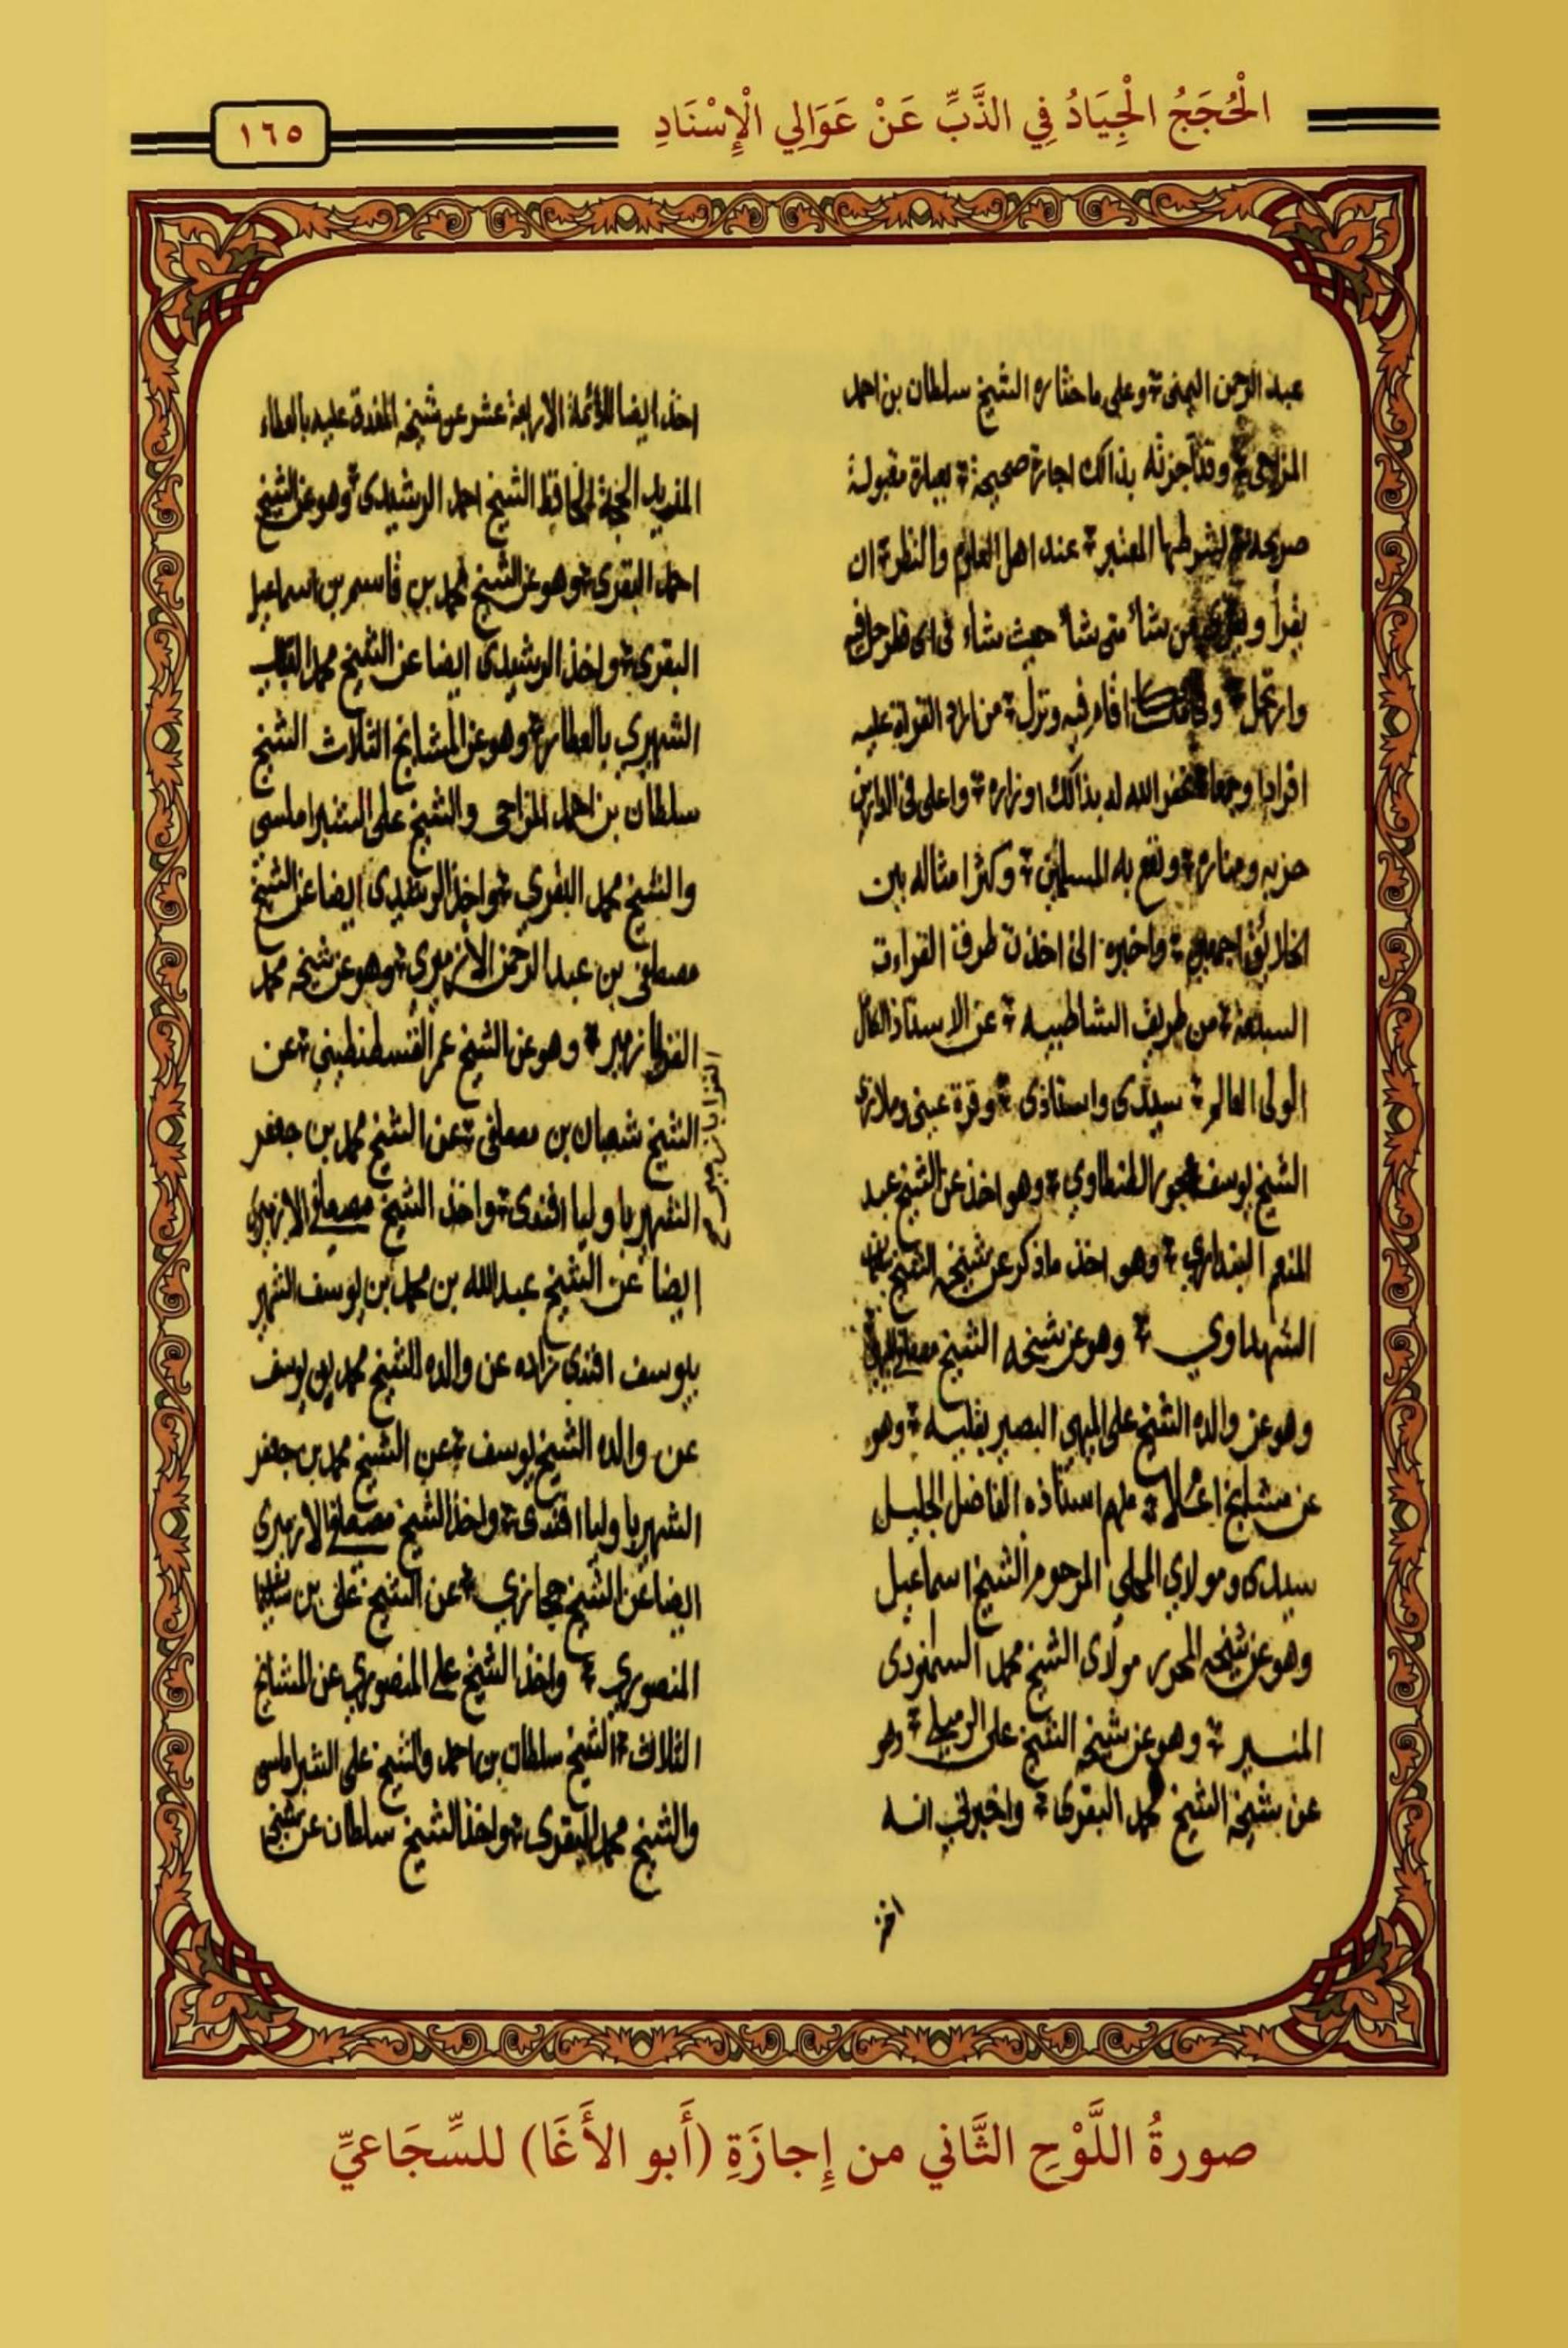 الْحُجَجُ الْجِيَادُ فِي الذَّبِّ عَنْ عَوَالِي الْإِسْنَادِ
١٦٥
عبد الرحمن اليمنى وعلى ما اختاره الشيخ سلطان بن احمد
المزاحى وقد اجزته بذالك اجازة صحيحة بعبارة مقبولة
صريحة بشرطها المعتبر عند اهل العلوم والنظر ان
يقرأ ويقرئ من شأ متى شأ حيث شاء فى اى قطر حل فيه
وارتحل اقام فيه ونزل من اراد القراة عليه
افرادا وجمعا الله له بذالك اوزاره واعلى فى الدارين
حزبه ومناره ونفع به المسلمين وكثر امثاله بين
الخلايق اجمعين واخبره انى اخذت طرق القراءت
السبعة من طريق الشاطبيه عن الاستاذ الكامل
المولى العالم سيدى واستاذى وقرة عينى وملاذى
الشيخ يوسف عجور الطنطاوي وهو اخذ عن الشيخ عبد
المنعم البندارى وهو اخذ ماذكر عن شيخه الشيخ سليمان
الشهداوي وهو عن شيخه الشيخ مصطفى الميهى
وهو عن والده الشيخ على الميهى البصير بقلبه وهو
عن مشايخ اجلا منهم استاذه الفاضل الجليل
سيدى ومولاي المحلي المرحوم الشيخ اسماعيل
وهو عن شيخه المحرر مولاى الشيخ محمد السمنودى
المنير وهو عن شيخه الشيخ على الرميلى وهو
عن شيخه الشيخ محمد البقرى واخبرني انه
اخذ
اخذ ايضا للأئمة الاربعة عشر عن شيخه المغدق عليه بالعطاء
المزيد الحجة الحافظ الشيخ احمد الرشيدى وهو عن الشيخ
احمد البقرى وهو عن الشيخ محمد بن قاسم بن اسماعيل
البقرى واخذ الرشيدى ايضا عن الشيخ محمد
الشهير بالعطار وهو عن المشايخ الثلاث الشيخ
سلطان بن احمد المزاحى والشيخ على الشبراملسى
والشيخ محمد البقري واخذ الرشيدى ايضا عن الشيخ
مصطفى بن عبد الرحمن الأزميري وهو عن شيخه محمد
وهو عن الشيخ عمر القسطنطيني عن
الشيخ شعبان بن مصطفى عن الشيخ محمد بن جعفر
الشهير با وليا افندى واخذ الشيخ مصطفى الازميرى
ايضا عن الشيخ عبد الله بن محمد بن يوسف الشهير
بيوسف افندى زاده عن والده الشيخ محمد بن يوسف
عن والده الشيخ يوسف عن الشيخ محمد بن جعفر
الشهير با وليا افندى واخذ الشيخ مصطفى الازميرى
ايضا عن الشيخ حجازي عن الشيخ على بن سليمان
المنصوري واخذ الشيخ على المنصوري عن المشايخ
الثلاث الشيخ سلطان بن احمد والشيخ على الشبراملسى
والشيخ محمد البقرى واخذ الشيخ سلطان عن شيخه
صورةُ اللَّوْحِ الثَّاني من إِجازَةِ (أَبو الأَغَا) للسِّجَاعيِّ